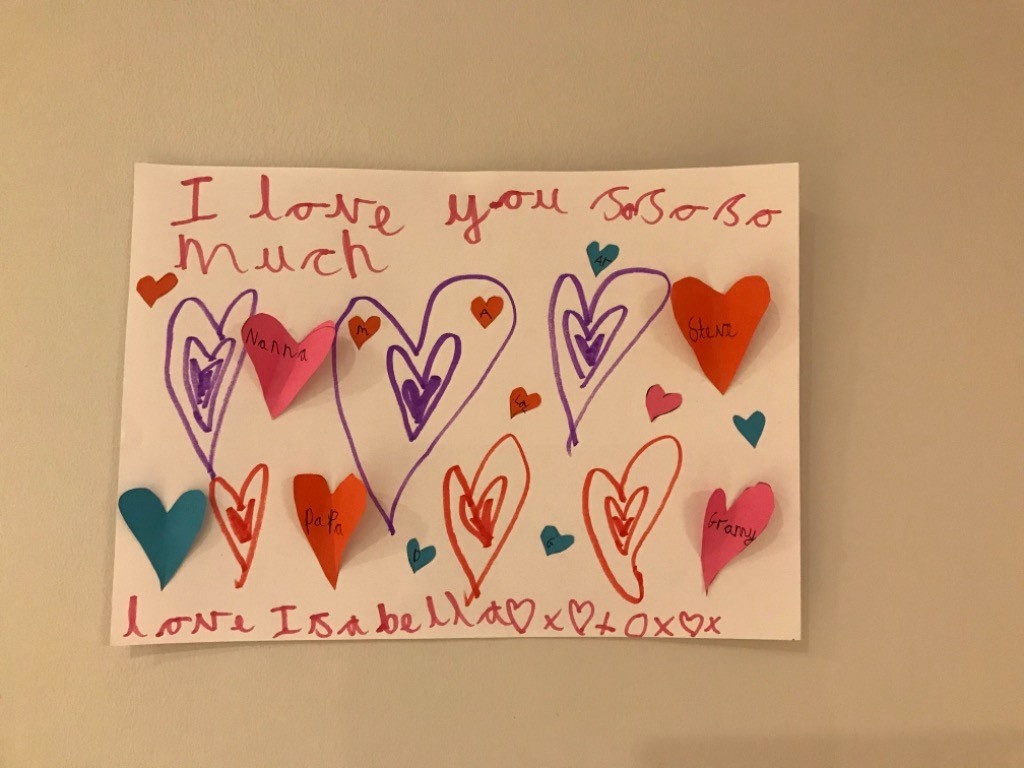 I love you so so so
much
M
A
Nanna
Steve
PaPa
D
Grany
love Isabella♡x♡+Ox♡x